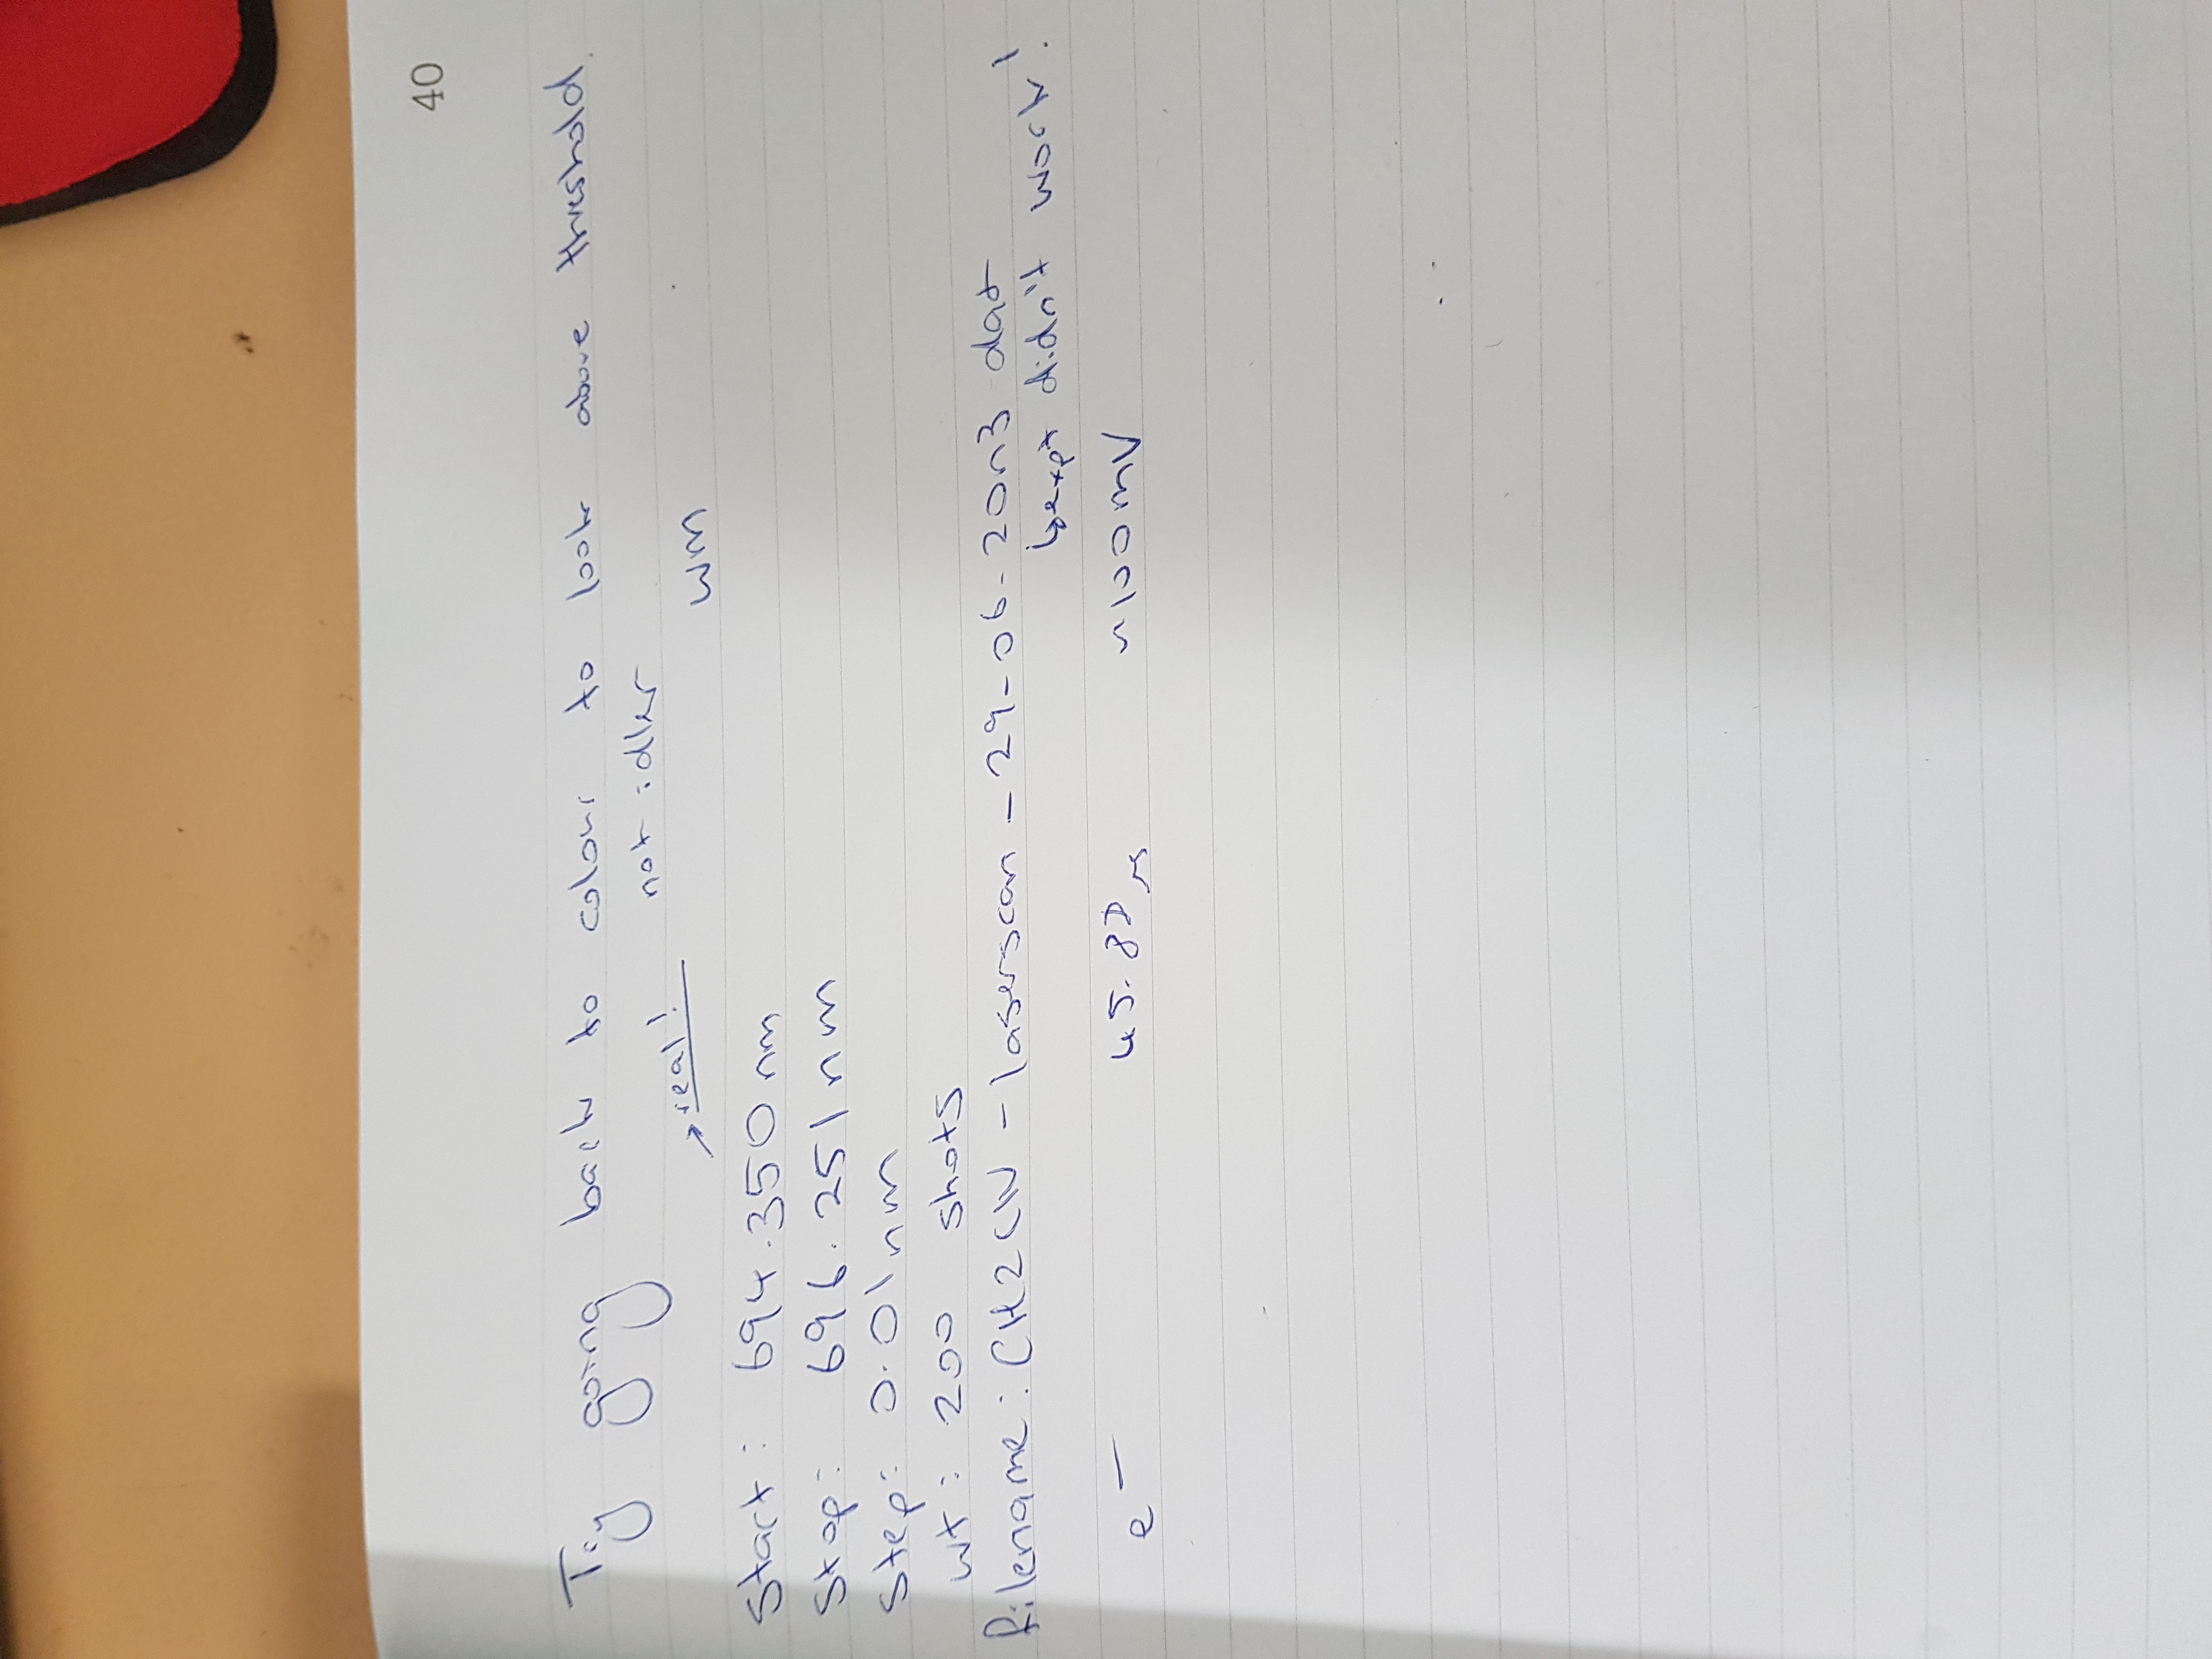 40
Try going back to colour to look above threshold.
→ real! not idler
wm
Start: 694.350 nm
Stop: 696.251 nm
Step: 0.01 nm
wt: 200 shots
filename: CH2CN - laserscan - 29-06-20n3 dat
↳ expt didn't work!
e⁻ 45. μs ~100mV